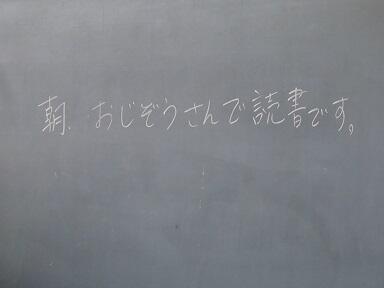 朝、おじぞうさんで読書です。